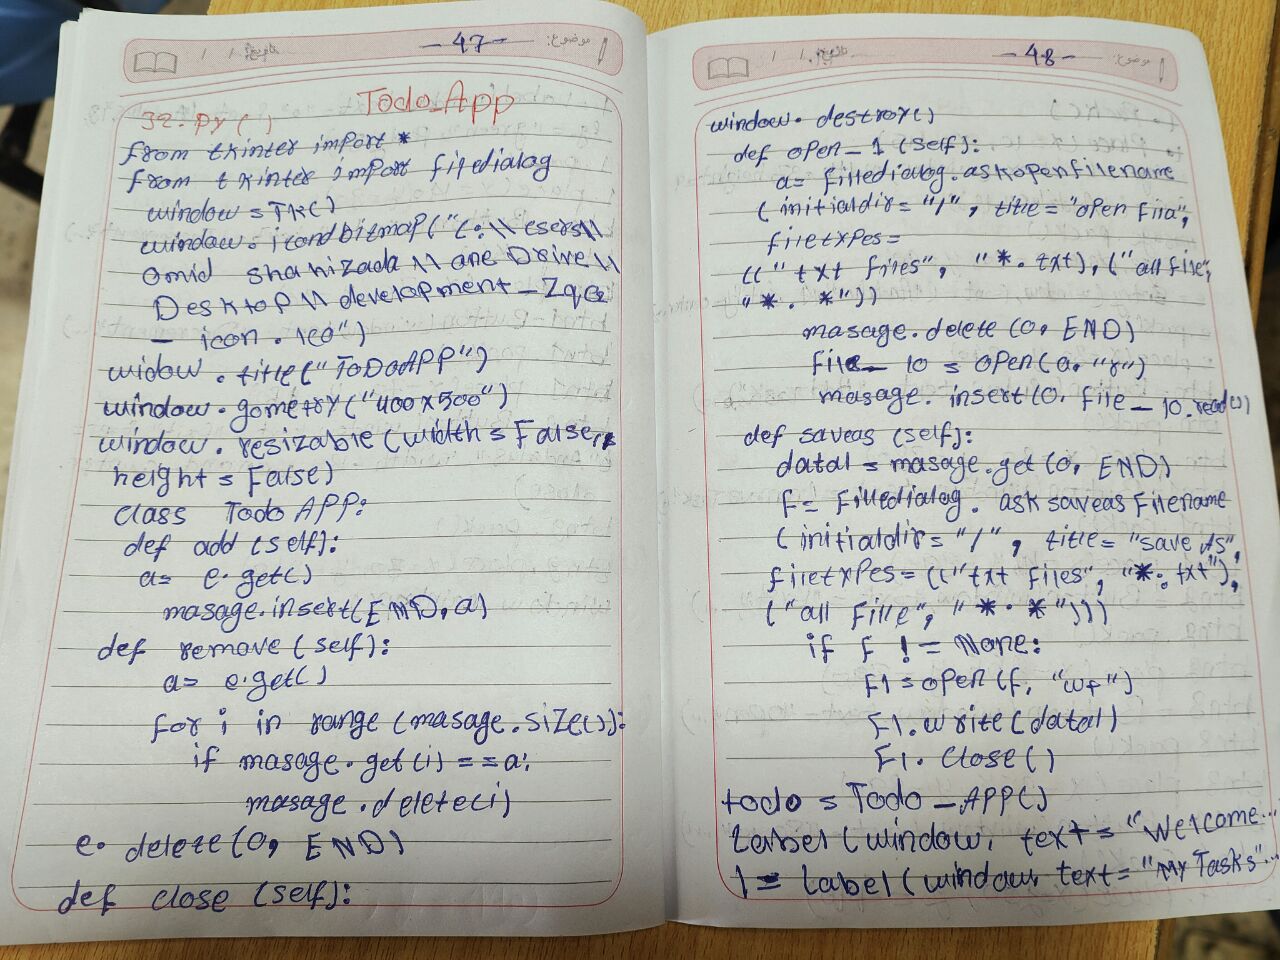 موضوع: - 47 - تاریخ: / /
Todo_App
32.py( )
from tkinter import *
from tkinter import filedialog
window = Tk()
window.icondbitmap("C:\\esers\\
omid shahizada \\ one Drive \\
Desktop \\ development - Zqaz
- icon.ico")
widow.title("ToDoAPP")
window.gometry("400x500")
window.resizable(width=False,
height=False)
class Todo APP:
def add (self):
a= e.get()
masage.insert(END,a)
def remove (self):
a= e.get()
for i in range (masage.size()):
if masage.get(i) ==a:
masage.delete(i)
e. delete(0, END)
def close (self):
موضوع: - 48 - تاریخ: / /
window.destroy()
def open_1 (self):
a= filedialog.askopenfilename
(initialdir="/", title="open fila",
filetypes=
(("txt files", "*.txt), ("all file",
"*. *"))
masage.delete (0, END)
file_10 = open(a, "r")
masage.insert(0, file_10.read())
def saveas (self):
data1 = masage.get(0, END)
F= Filledialog. ask saveas Filename
(initialdir="/", title="save As",
filetypes=(("txt files", "*.txt"),
("all Fille", "*.*")))
if F != None:
F1=open(f, "w+")
F1.write(data1)
F1.close()
todo = Todo_APP()
Label(window, text="Welcome...
l= Label(window, text="My Tasks"...